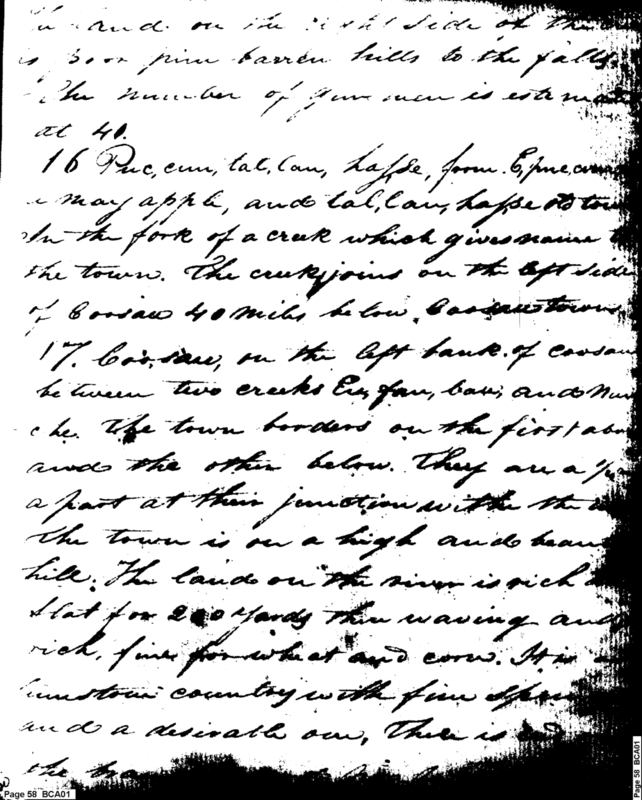 and on the right side of the
is poor pine barren hills to the falls.
The number of gun men is estima
at 40.
16 Puc, cun, tal, lau, hasse, from E, puc, cun
a may apple, and tal, lau, hasse old town
In the fork of a creek which gives name
the town. The creek joins on the left side
of Coosau 40 miles below Coosau town.
17. Coo, sau, on the left bank of coosau
between two creeks Eu, fau, lau, and Nau
che. The town borders on the first above
and the other below. They are a
a part at their junction with the
the town is on a high and beau
hill. The land on the river is rich
flat for 200 yards then waving and
rich, fine for wheat and corn. It is a
limestone country with fine spri
and a desirable one, There is
the
Page 58 BCA01
Page 58 BCA01